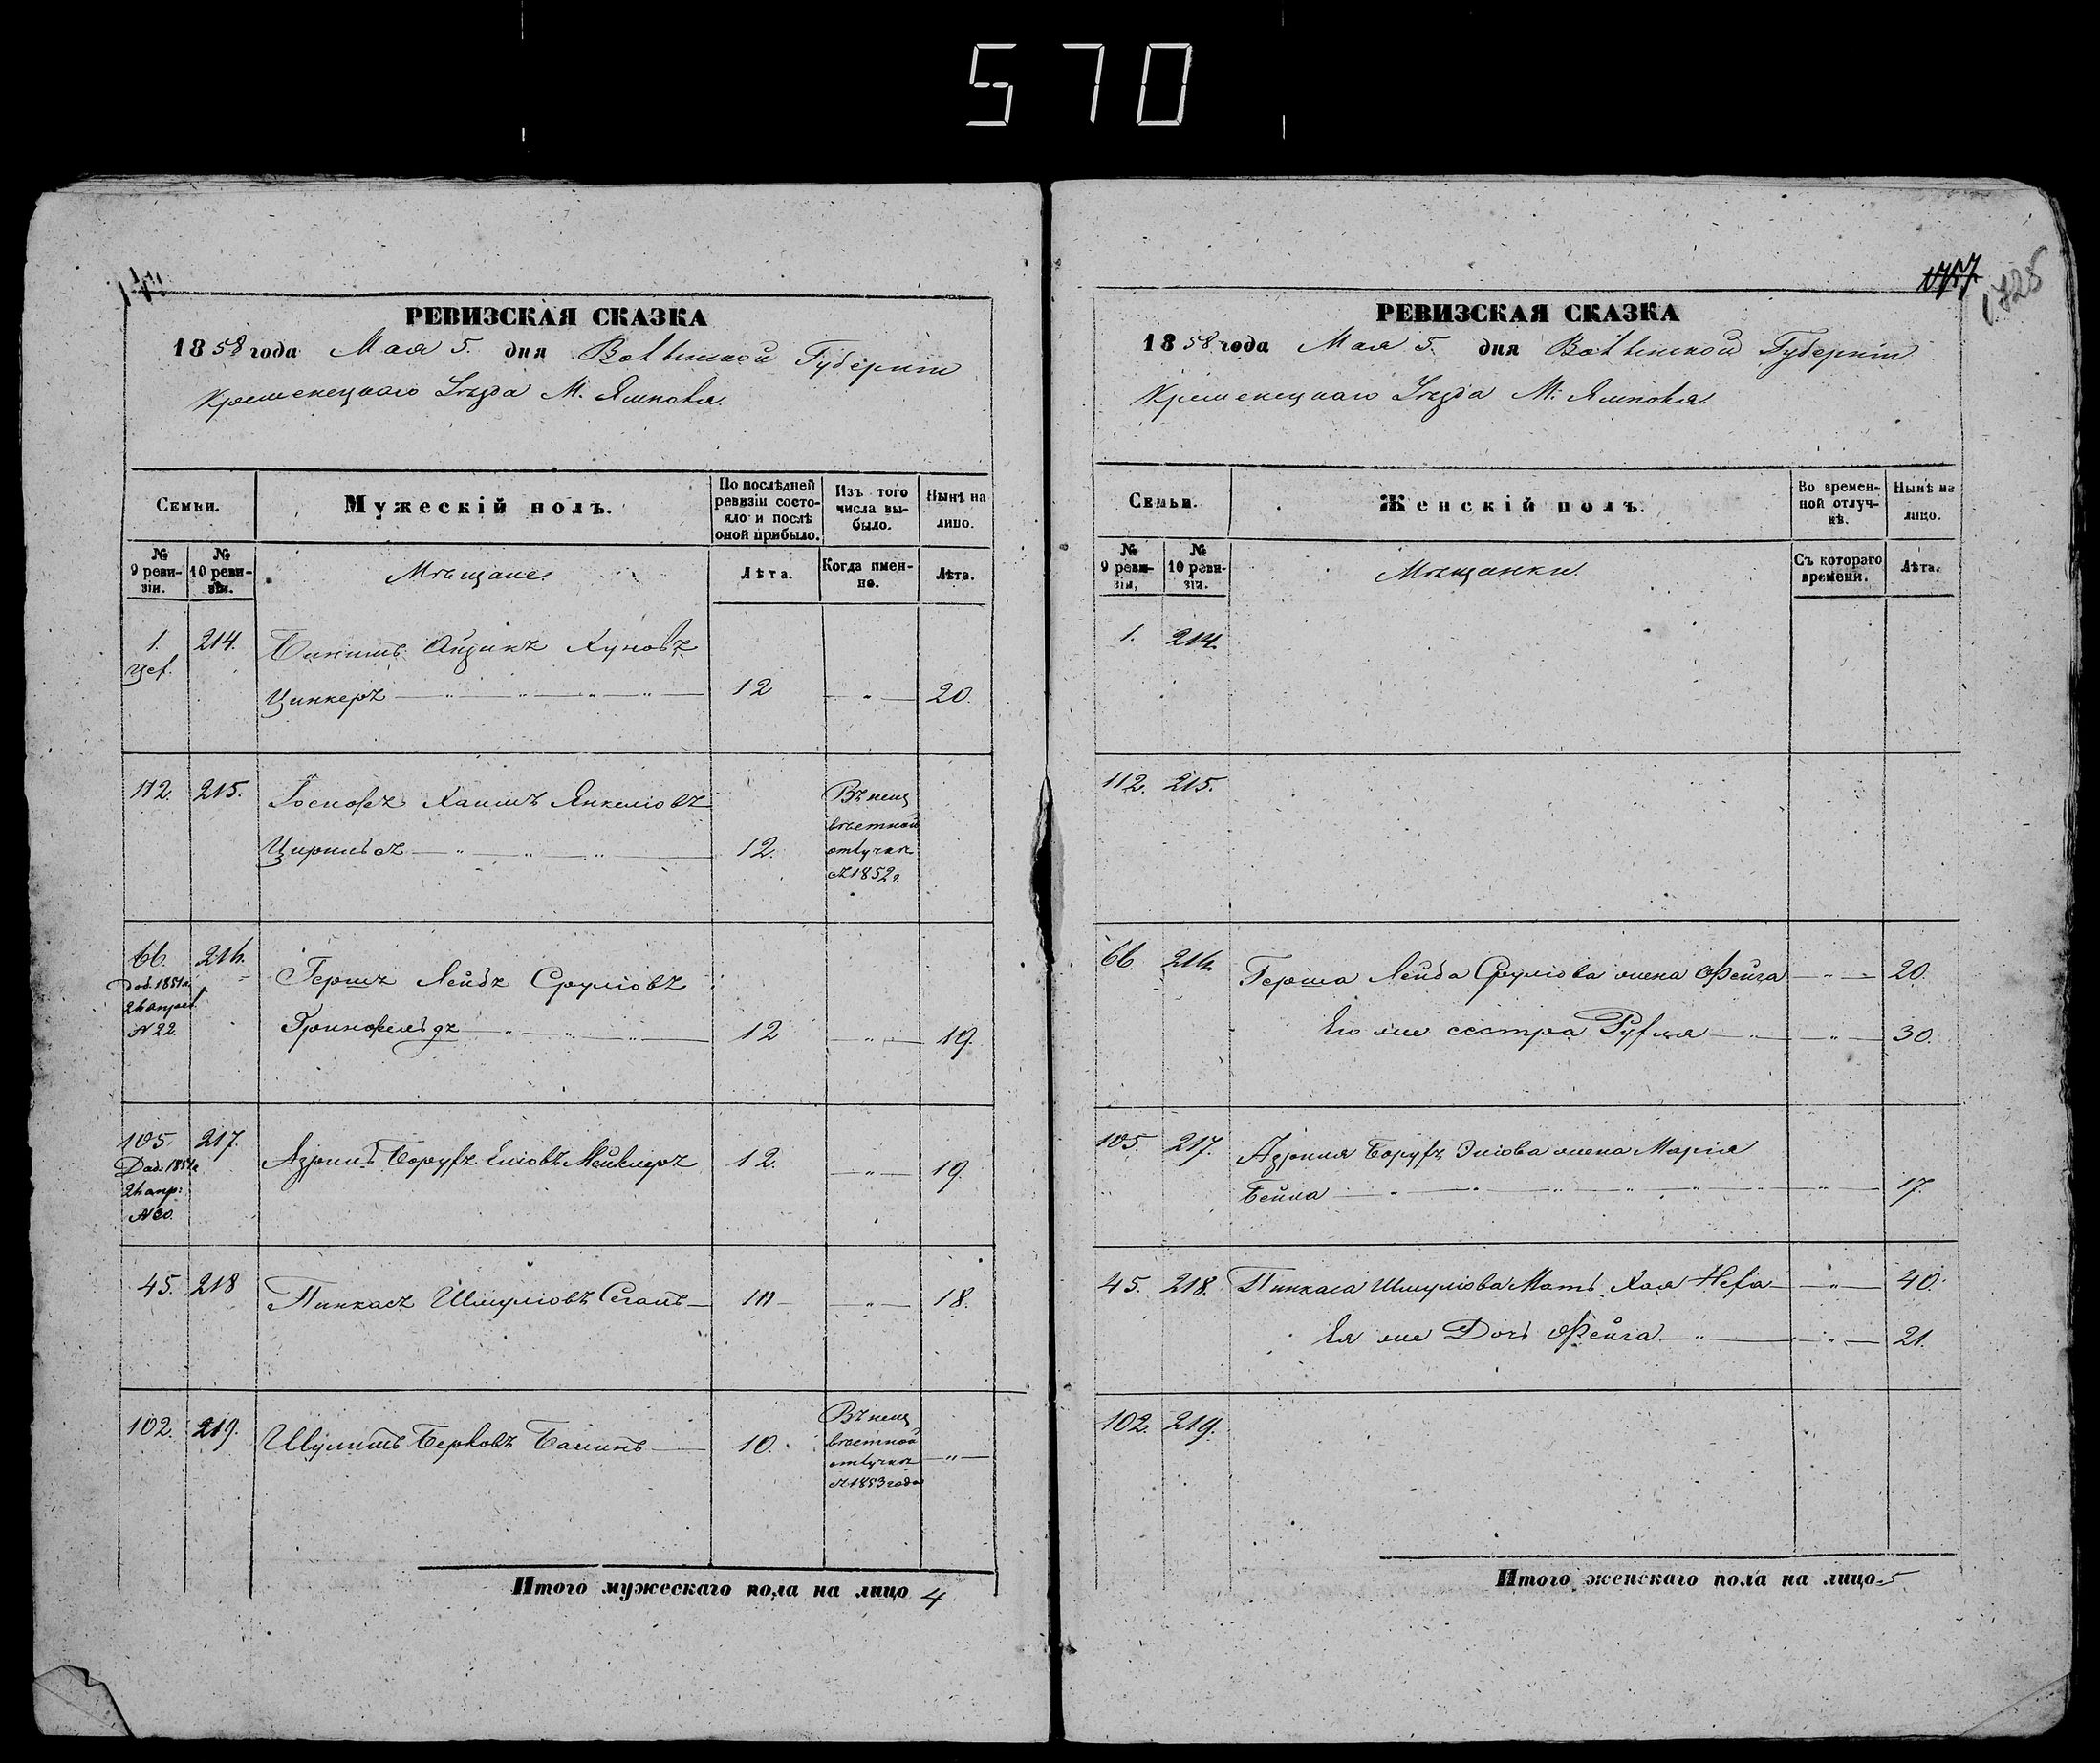 570
РЕВИЗСКАЯ СКАЗКА
1858 года Мая 5. дня Волынской Губерніи
Кременецкаго Уѣзда М. Ямполя.
Семьи.
Мужескій полъ.
По послѣдней ревизіи состояло и послѣ оной прибыло.
Изъ того числа выбыло.
Нынѣ на лицо.
№ 9 ревизіи.
№ 10 ревизіи.
Мѣщане.
Лѣта.
Когда именно.
Лѣта.
1. 214. Айзикъ Хуновъ
Цинкеръ 12 " 20.
112. 215. Іосифъ Хаимъ Янкеліовъ
12.
Въ неизвѣстной отлучкѣ съ 1852 г.
66. 216. Гершъ Лейбъ Сруліовъ
Доб. 1851 г.
24 апрѣл.
№ 22.
Гринфельдъ 12 " 19.
105. 217. Азріиль Борухъ Еліовъ 12. " 19.
Доб. 1851 г.
24 апр:
45. 218 Пинкасъ Шмуліовъ Сеганъ " 18.
102. 219. Берковъ 10. "
Въ неизвѣстной отлучкѣ съ 1853 года
Итого мужескаго пола на лицо 4
1757
1725
РЕВИЗСКАЯ СКАЗКА
1858 года Мая 5. дня Волынской Губерніи
Кременецкаго Уѣзда М. Ямполя.
Семьи.
Женскій полъ.
Во временной отлучкѣ.
Нынѣ на лицо.
№ 9 ревизіи.
№ 10 ревизіи.
Мѣщанки.
Съ котораго времени.
Лѣта.
1. 214.
112. 215.
66. 216. Герша Лейба Сруліова жена Фейга " 20.
Его же сестра Рухля " 30.
105. 217. Азріиля Борухъ Эліова жена Марія
Бейла " 17.
45. 218. Пинкаса Шмуліова Мать Хая Неха " 40.
Ея же Дочь Фейга " 21.
102. 219.
Итого женскаго пола на лицо 5